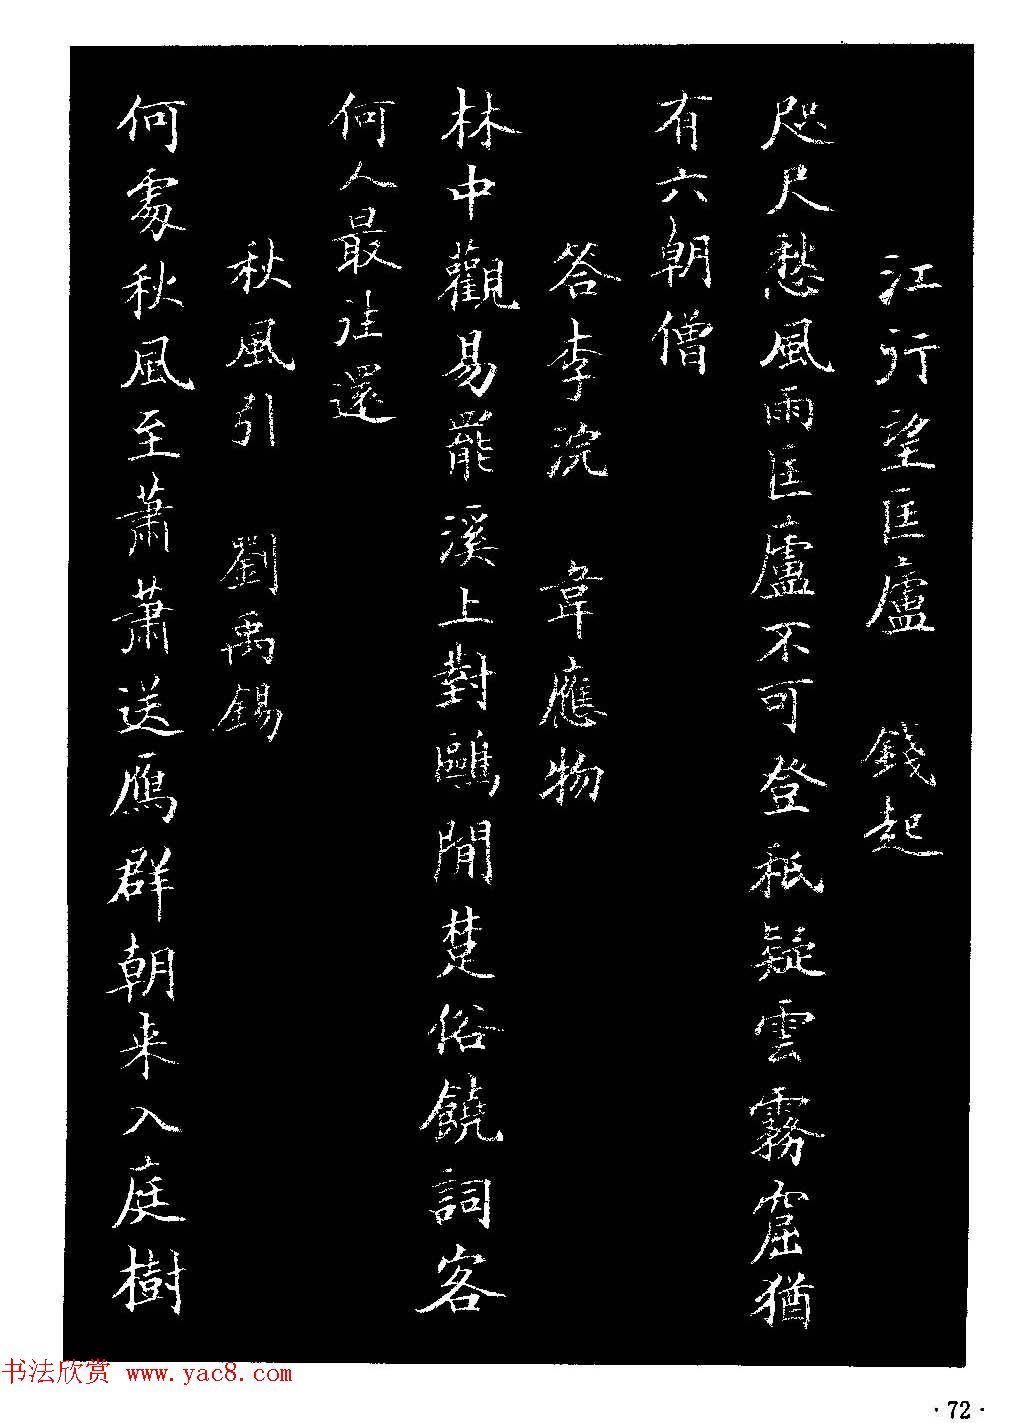 江行望匡廬　錢起
咫尺愁風雨匡廬不可登秖疑雲霧窟猶
有六朝僧
答李浣　韋應物
林中觀易罷溪上對鷗閒楚俗饒詞客
何人最往還
秋風引　劉禹錫
何處秋風至蕭蕭送雁群朝来入庭樹
书法欣赏 www.yac8.com
·72·